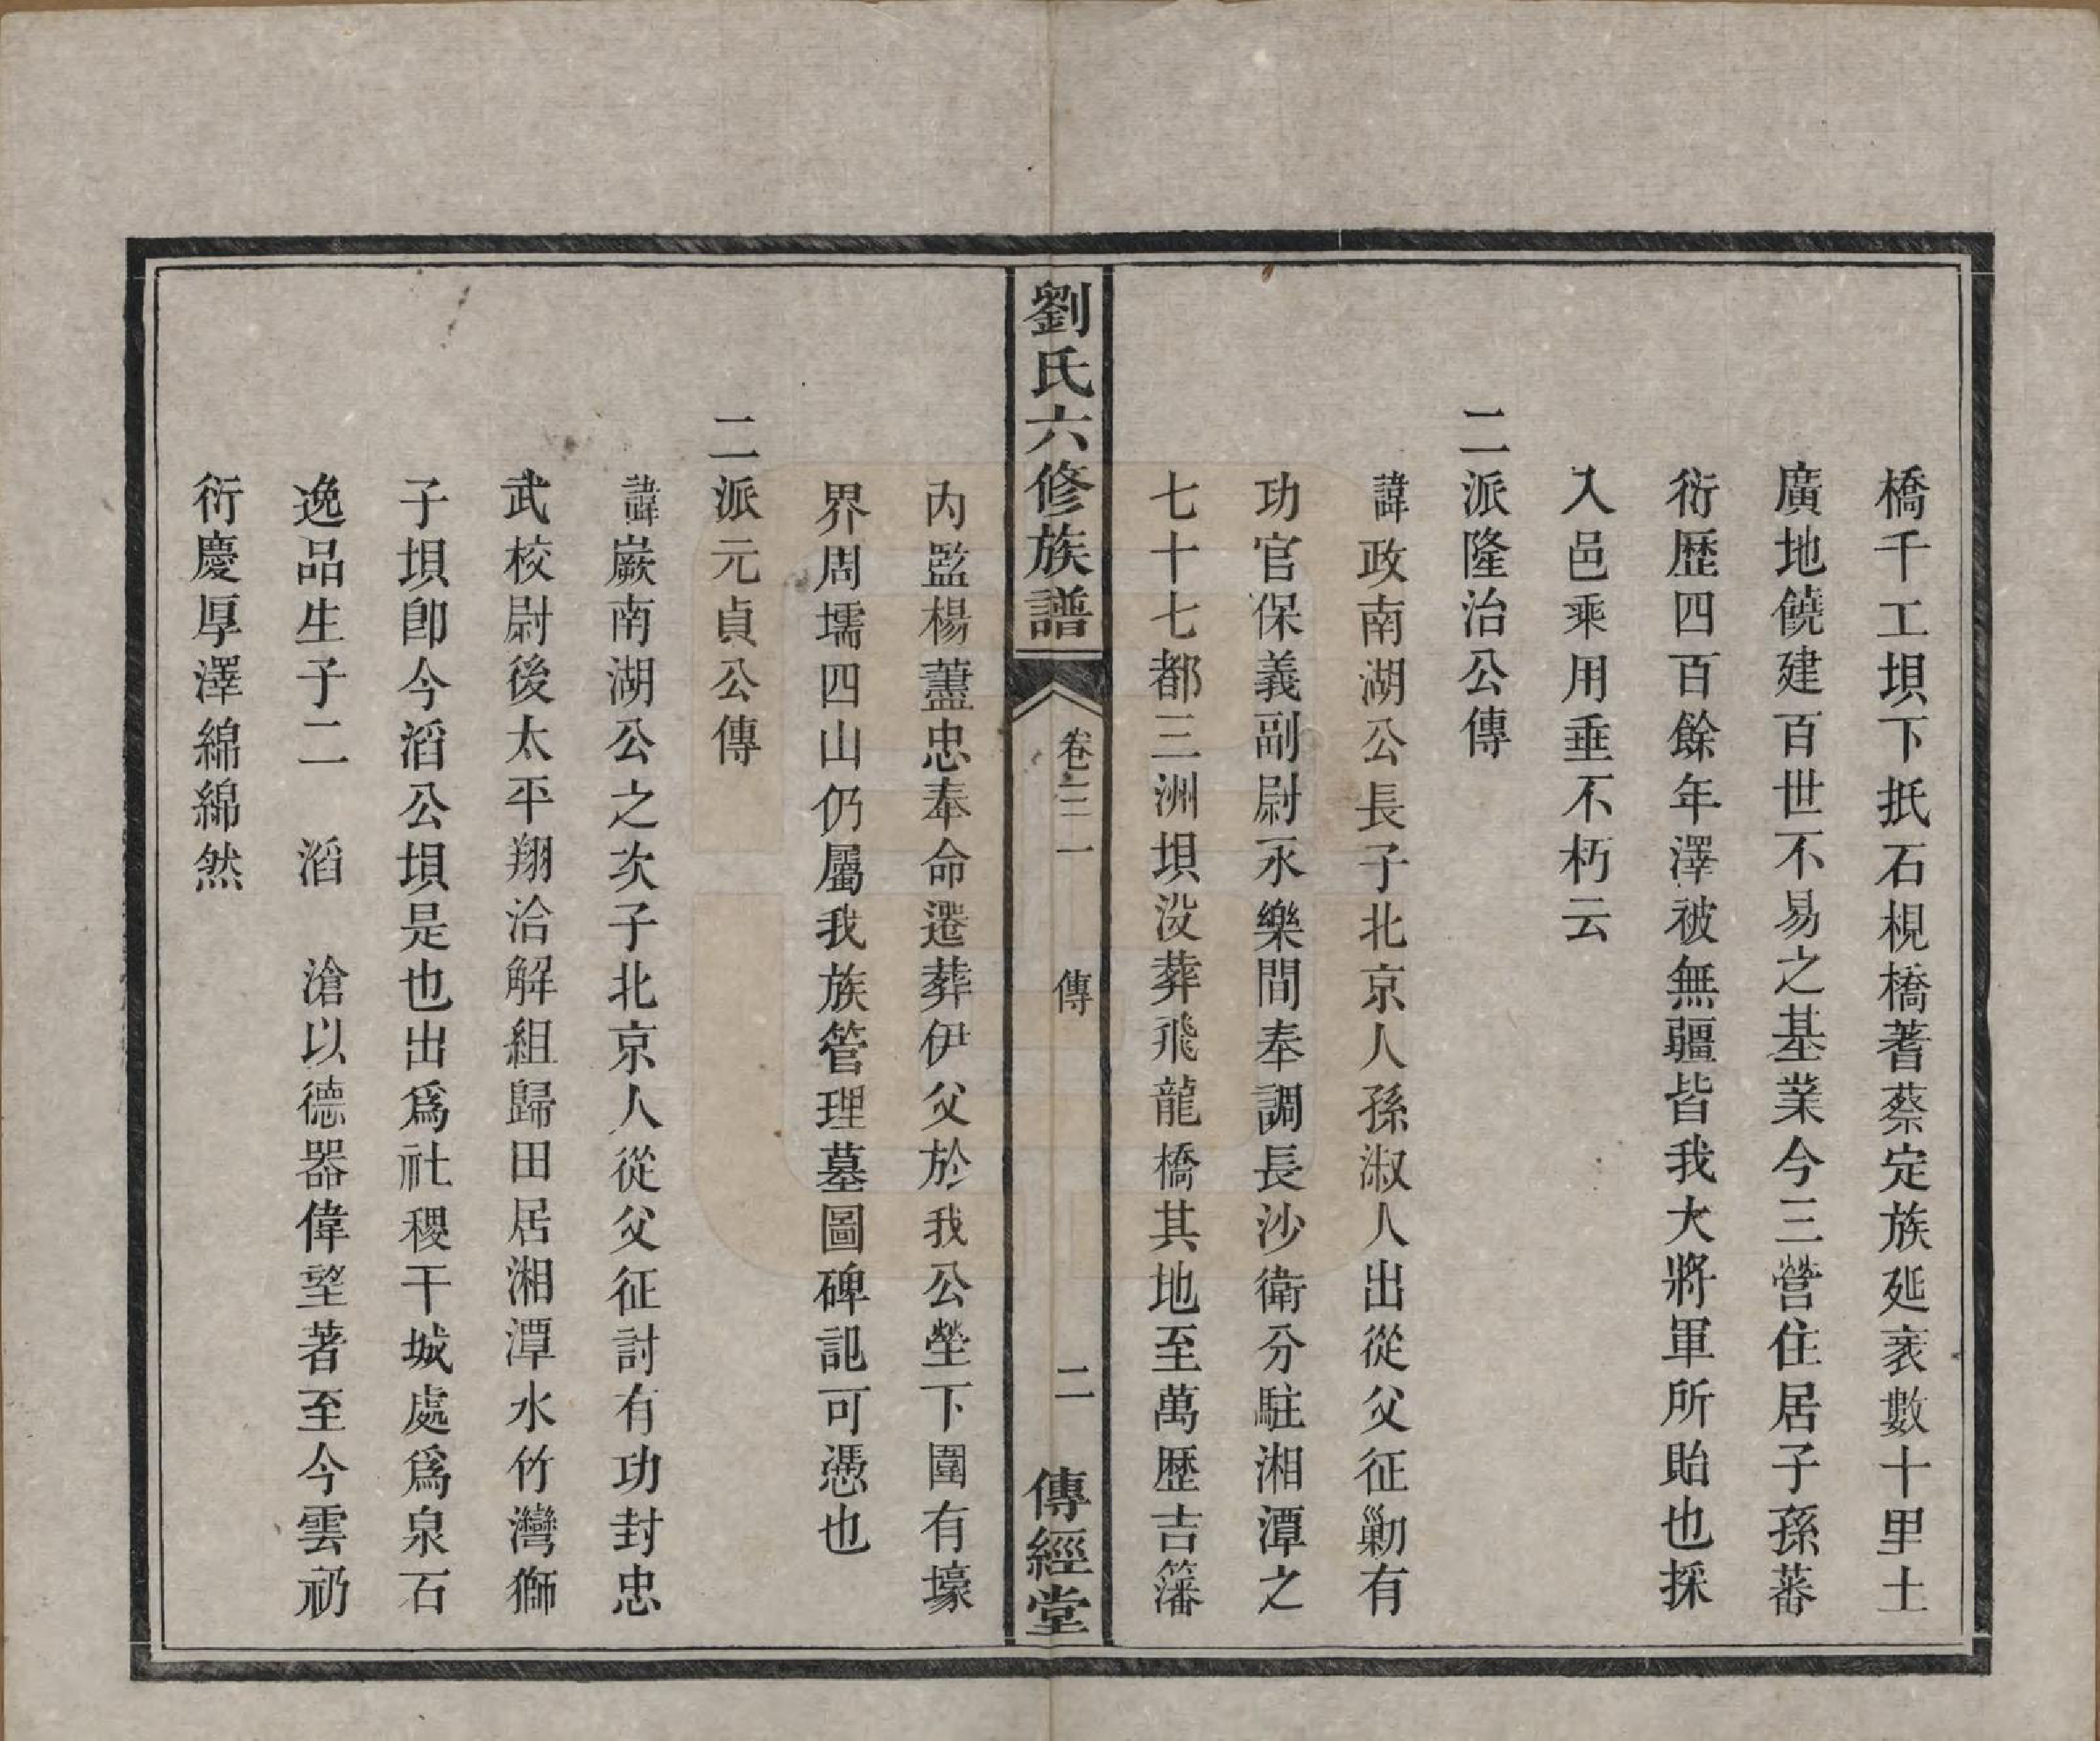 橋千工垻下抵石梘橋蓍蔡定族延袤數十里土
廣地饒建百世不易之基業今三營住居子孫蕃
衍歷四百餘年澤被無疆皆我大將軍所貽也採
入邑乘用垂不朽云
二派隆治公傳
諱政南湖公長子北京人孫淑人出從父征勦有
功官保義副尉永樂間奉調長沙衛分駐湘潭之
七十七都三洲垻没葬飛龍橋其地至萬歷吉籓
劉氏六修族譜
卷之二一
傳
二
傳經堂
內監楊藎忠奉命遷葬伊父於我公塋下圍有壕
界周壖四山仍屬我族管理墓圖碑記可憑也
二派元貞公傳
諱巖南湖公之次子北京人從父征討有功封忠
武校尉後太平翔洽解組歸田居湘潭水竹灣獅
子垻卽今滔公垻是也出爲社稷干城處爲泉石
逸品生子二 滔 滄以德器偉望著至今雲礽
衍慶厚澤綿綿然